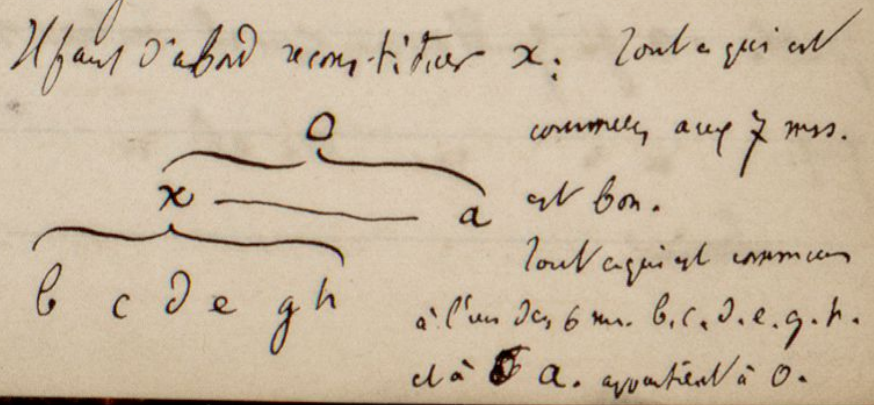 Il faut d'abord reconstituer x : Tout ce qui est
commun aux 7 mss.
est bon.
O
x a
b c d e g h
Tout ce qui est commun
à l'un des 6 ms. b. c. d. e. g. h.
et à a. appartient à O.